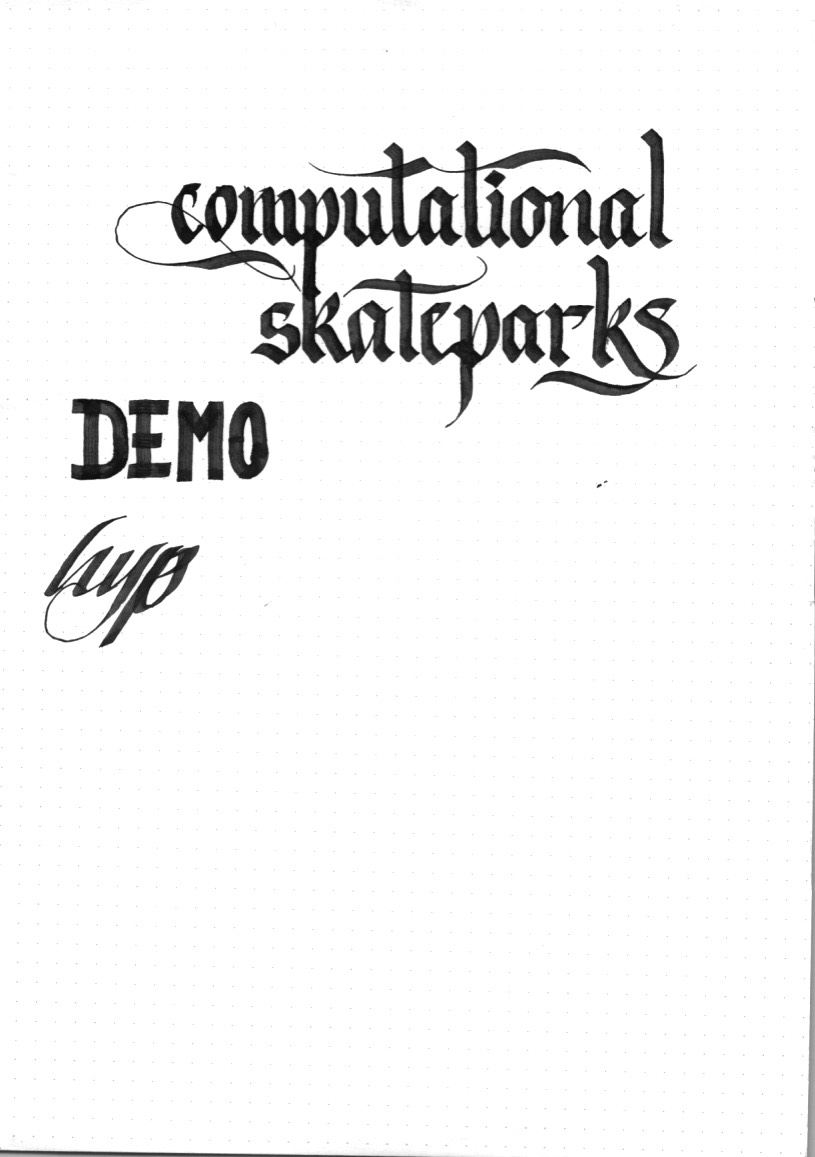 computational
skateparks
DEMO
hyp